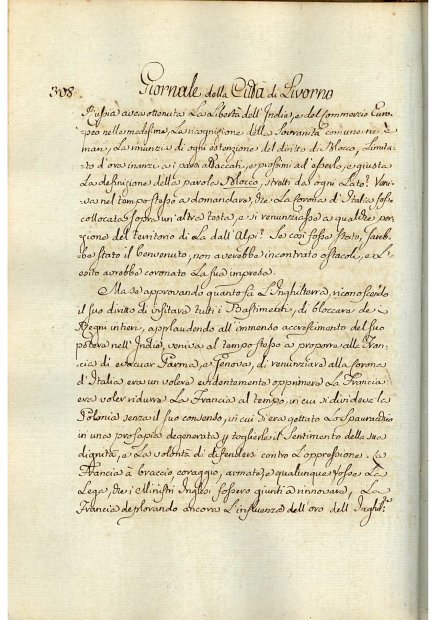 308. Giornale della Città di Livorno
Russia avea ottenuta La libertà dell'Indie, e del Commercio Euro-
peo nelle medesime, La ricognizione della Sovranità comune ne'
mari, La rinunzia di ogni estenzione del diritto di Blocco, Limita-
to d'ora inanzi a i paesi attaccati, e prossimi ad esserlo, e giusta
La definizione della parola Blocco, stretti da ogni Lato? Veni-
va nel tempo stesso a domandare, che La Corona d'Italia fosse
collocata sopra un'altra testa, e si renunziasse a qualche por-
zione del territorio di La dall'Alpi? Se così fosse stato, sareb-
be stato il benvenuto, non averebbe incontrato ostacoli, e L'
esito avrebbe coronato La sua impresa.
Ma se approvando quanto fa L'Inghilterra, riconoscendo
il suo diritto di visitare tutti i Bastimenti, di bloccare de
Regni intieri, applaudendo all'immenso accrescimento del suo
potere nell'India, veniva al tempo stesso a proporre alla Fran-
cia di evacuar Parma, e Genova, di renunziare alla Corona
d'Italia era un volere evidentemente opprimere La Francia
era voler ridurre La Francia al tempo, in cui si divideva la
Polonia senza il suo consenso, in cui si era gettato Lo Spavento
in una prosapia degenerata p toglierle il Sentimento della sua
dignità, e La volontà di difendersi contro L'oppressione: La
Francia à braccia coraggio, armate, e qualunque fosse La
Lega, che i Ministri Inglesi fossero giunti à rinnovare, La
Francia deplorando ancora L'influenza dell'oro dell'Inghil.